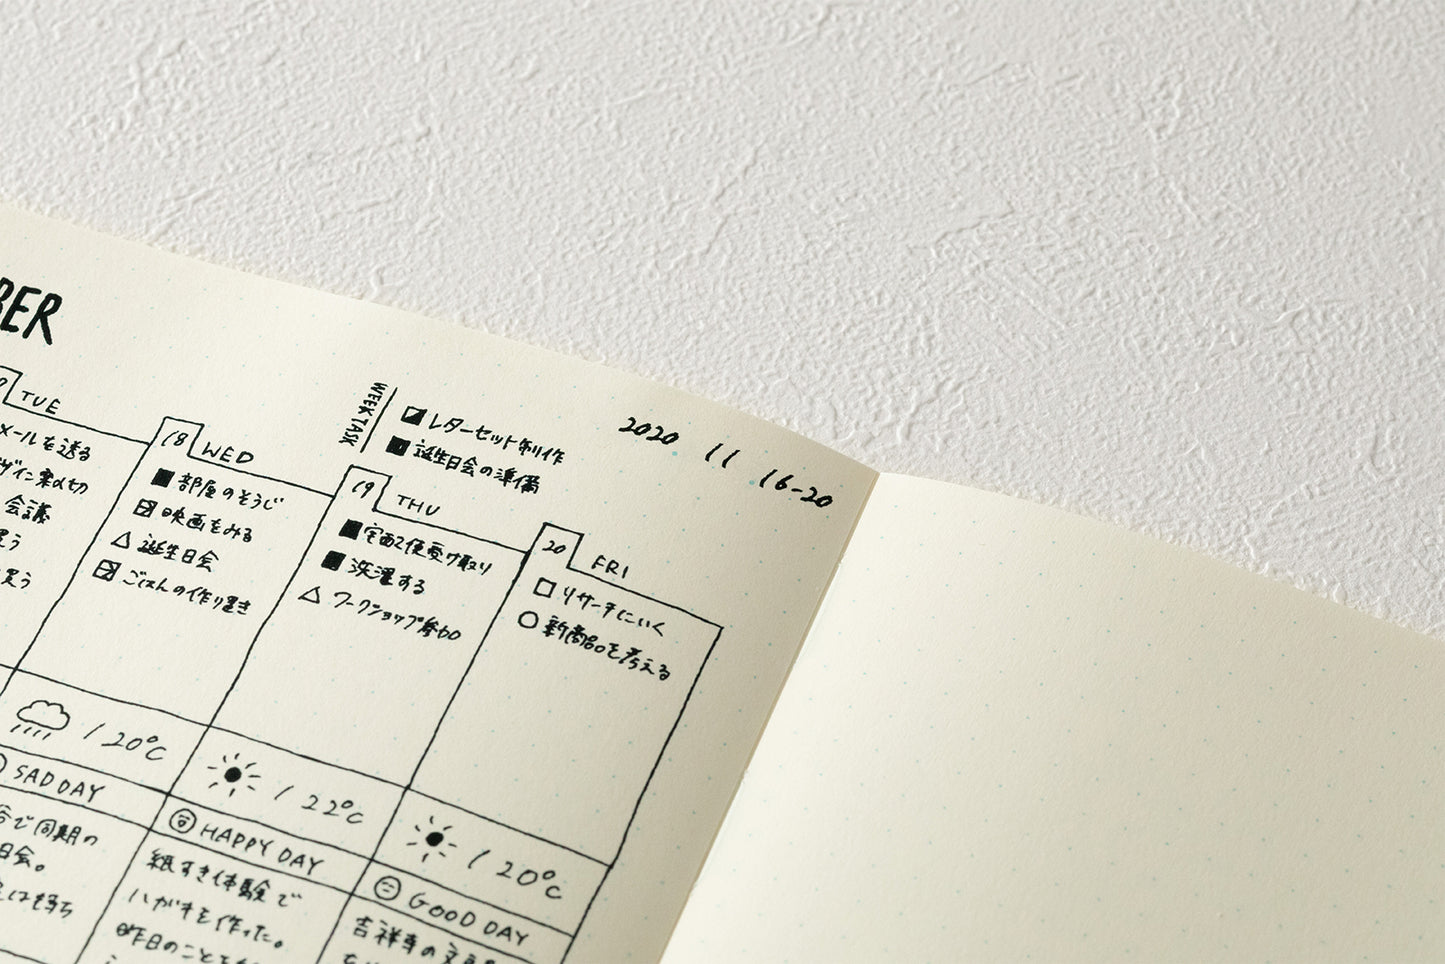 BER
2020 11 16-20
WEEK TASK
レターセット制作
誕生日会の準備
TUE
メールを送る
会議
買う
18 WED
部屋のそうじ
映画をみる
誕生日会
ごはんの作り置き
/ 20°C
SAD DAY
で同期の
日会。
19 THU
宅配便受け取り
洗濯する
ワークショップ参加
/ 22°C
HAPPY DAY
紙すき体験で
ハガキを作った。
昨日のことを
20 FRI
リサーチにいく
新商品を考える
/ 20°C
GOOD DAY
吉祥寺の文具